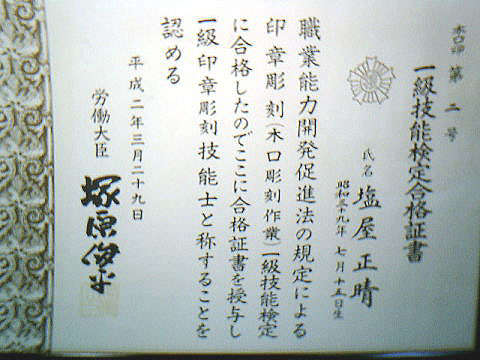 木口印 第二号
一級技能検定合格証書
氏名 塩屋正晴
昭和三十九年七月十五日生
職業能力開発促進法の規定による
印章彫刻(木口彫刻作業)一級技能検定
に合格したのでここに合格証書を授与し
一級印章彫刻技能士と称することを
認める
平成二年三月二十九日
労働大臣 塚原俊平